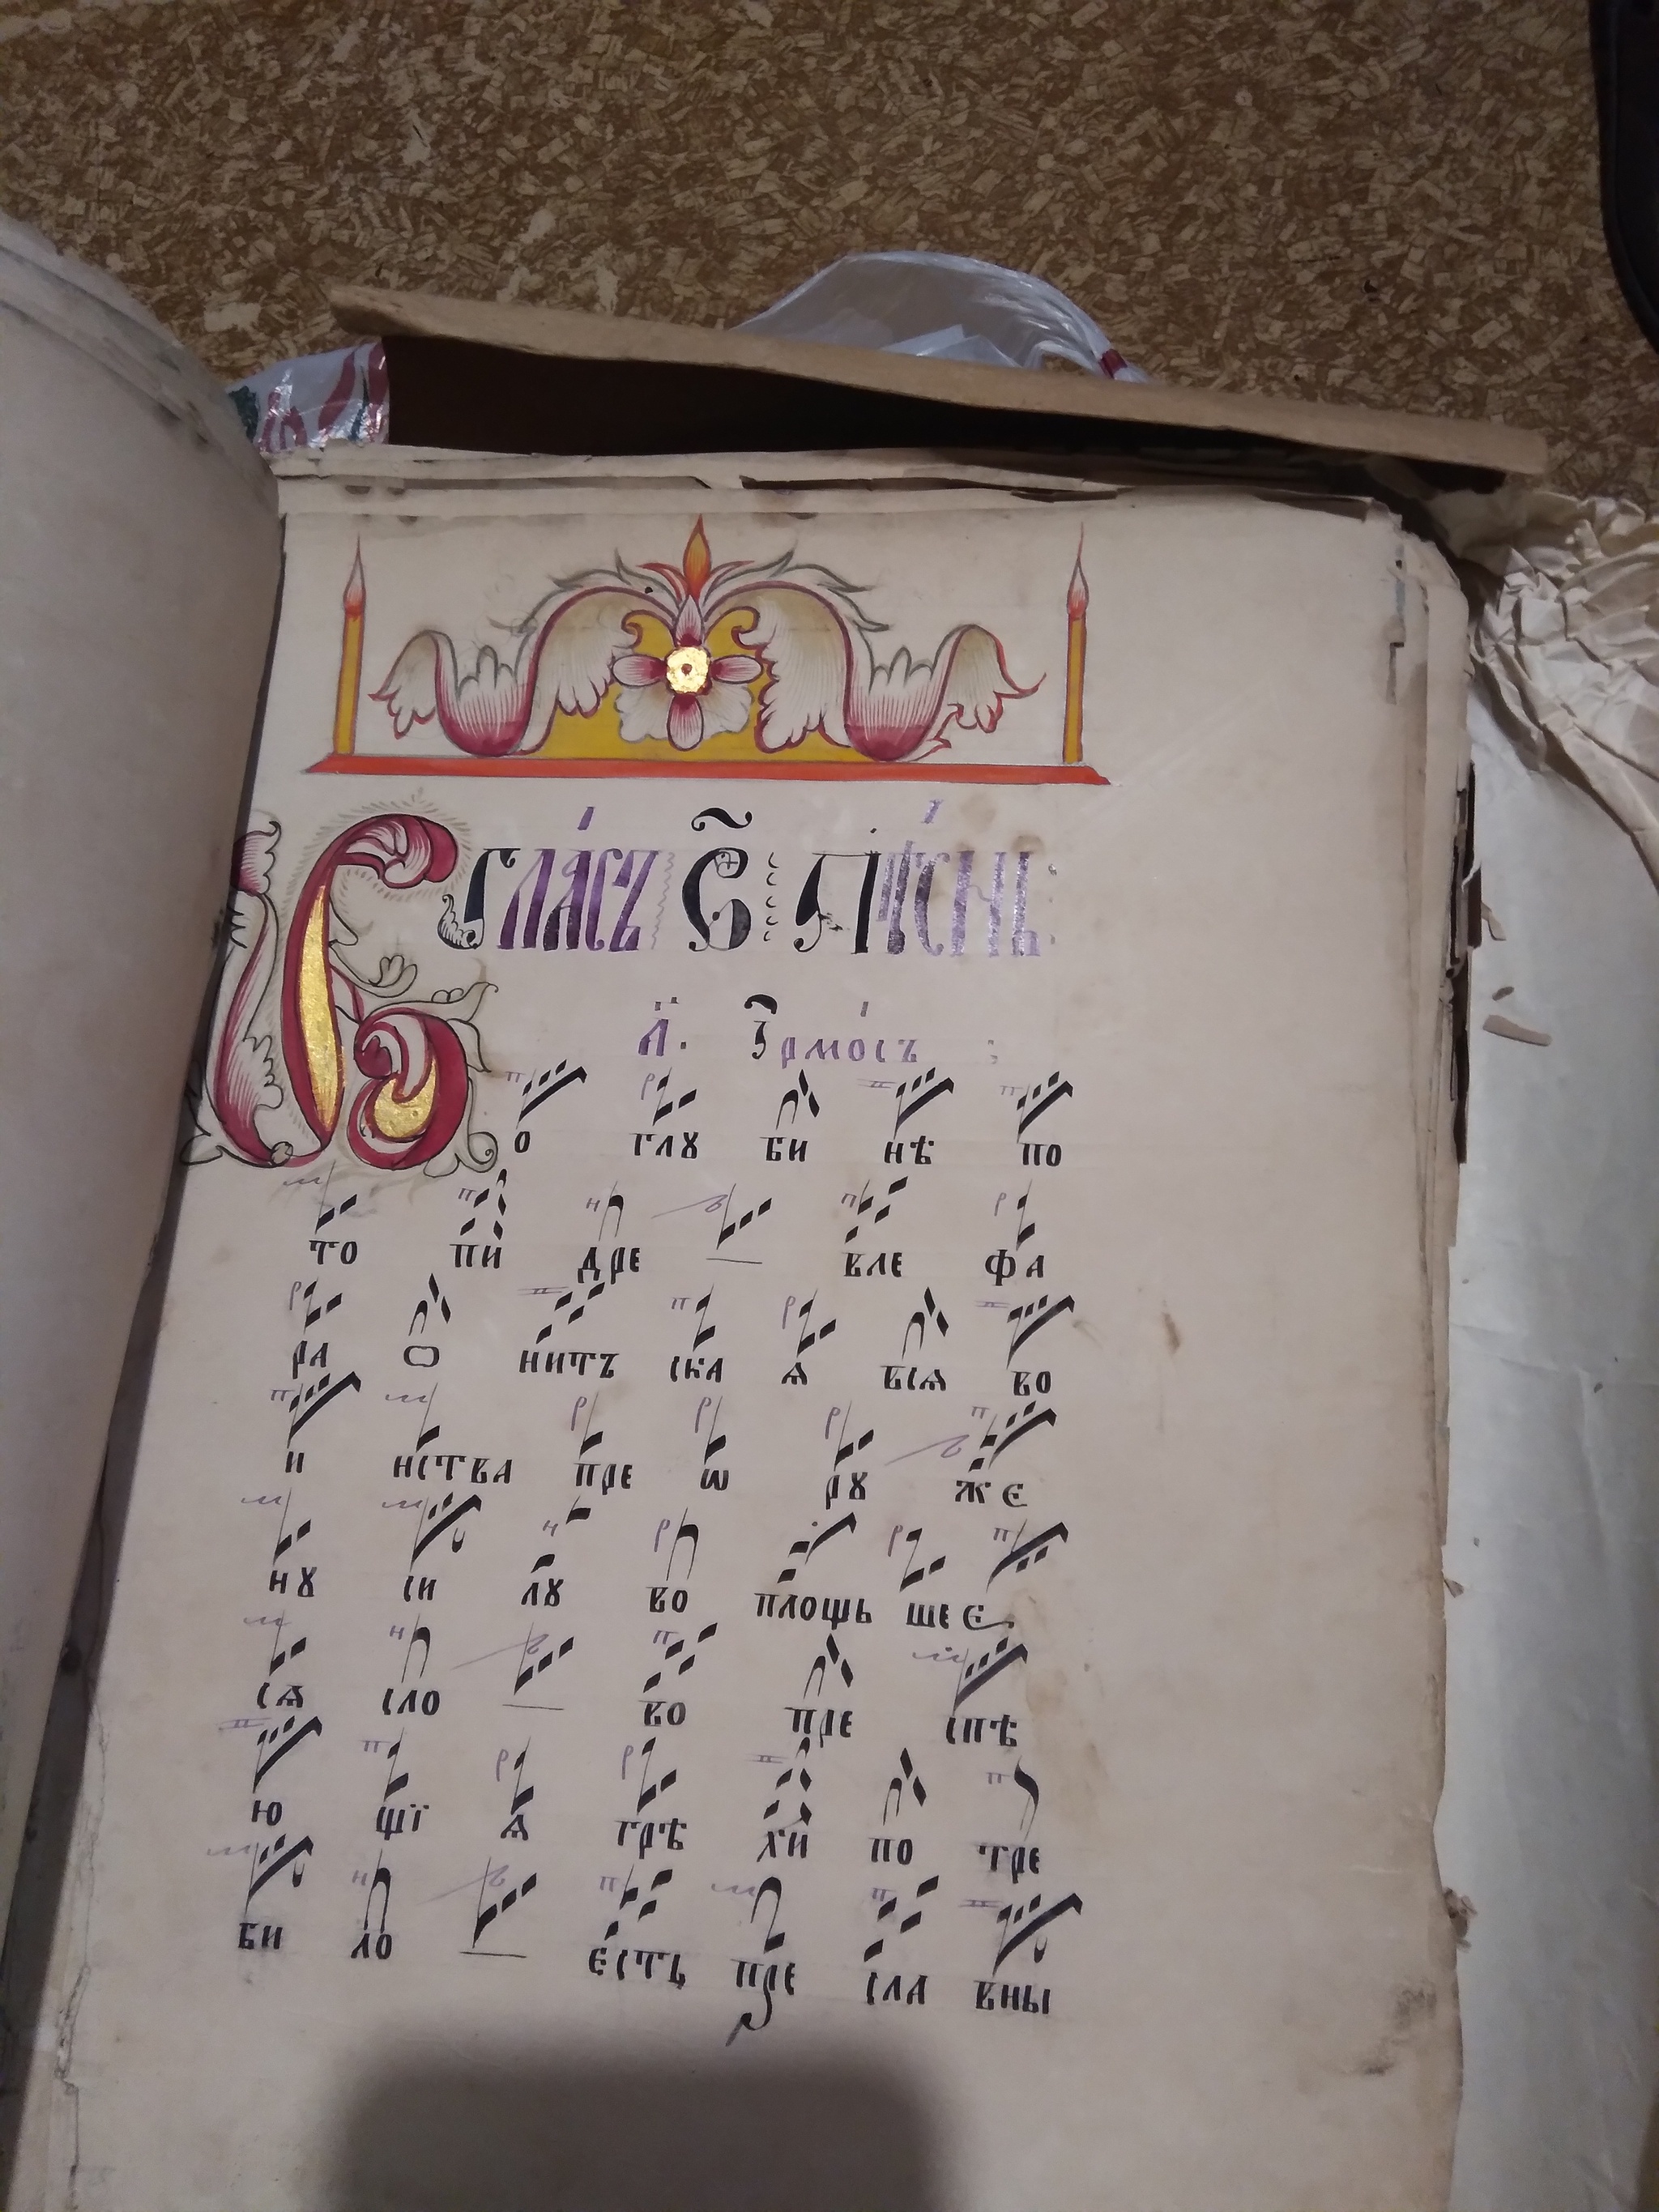 Гла́съ в҃ Пѣ́снь
а҃. І҆рмо́съ
Во глꙋ би нѣ по
то пи дре вле фа
ра ѻ нитъ ска ѧ всѧ во
и нства пре ѡ рꙋ же
нꙋ си лꙋ во площь ше є
сѧ сло во пре спѣ
ю щї ѧ грѣ хи по тре
би ло есть пре сла вны